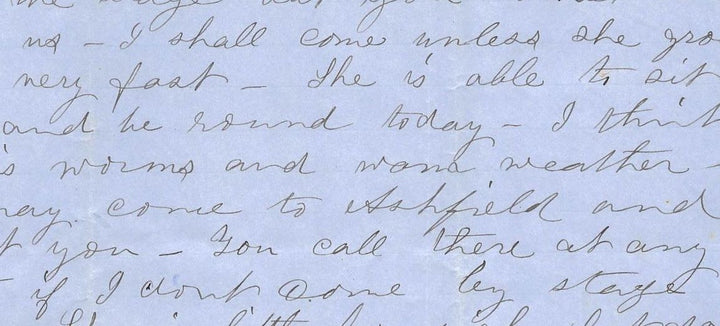 us – I shall come unless she gro
very fast – She is able to sit
and be round today – I think
s worms and warm weather –
may come to Ashfield and
t you – You call there at any
if I dont come by stage